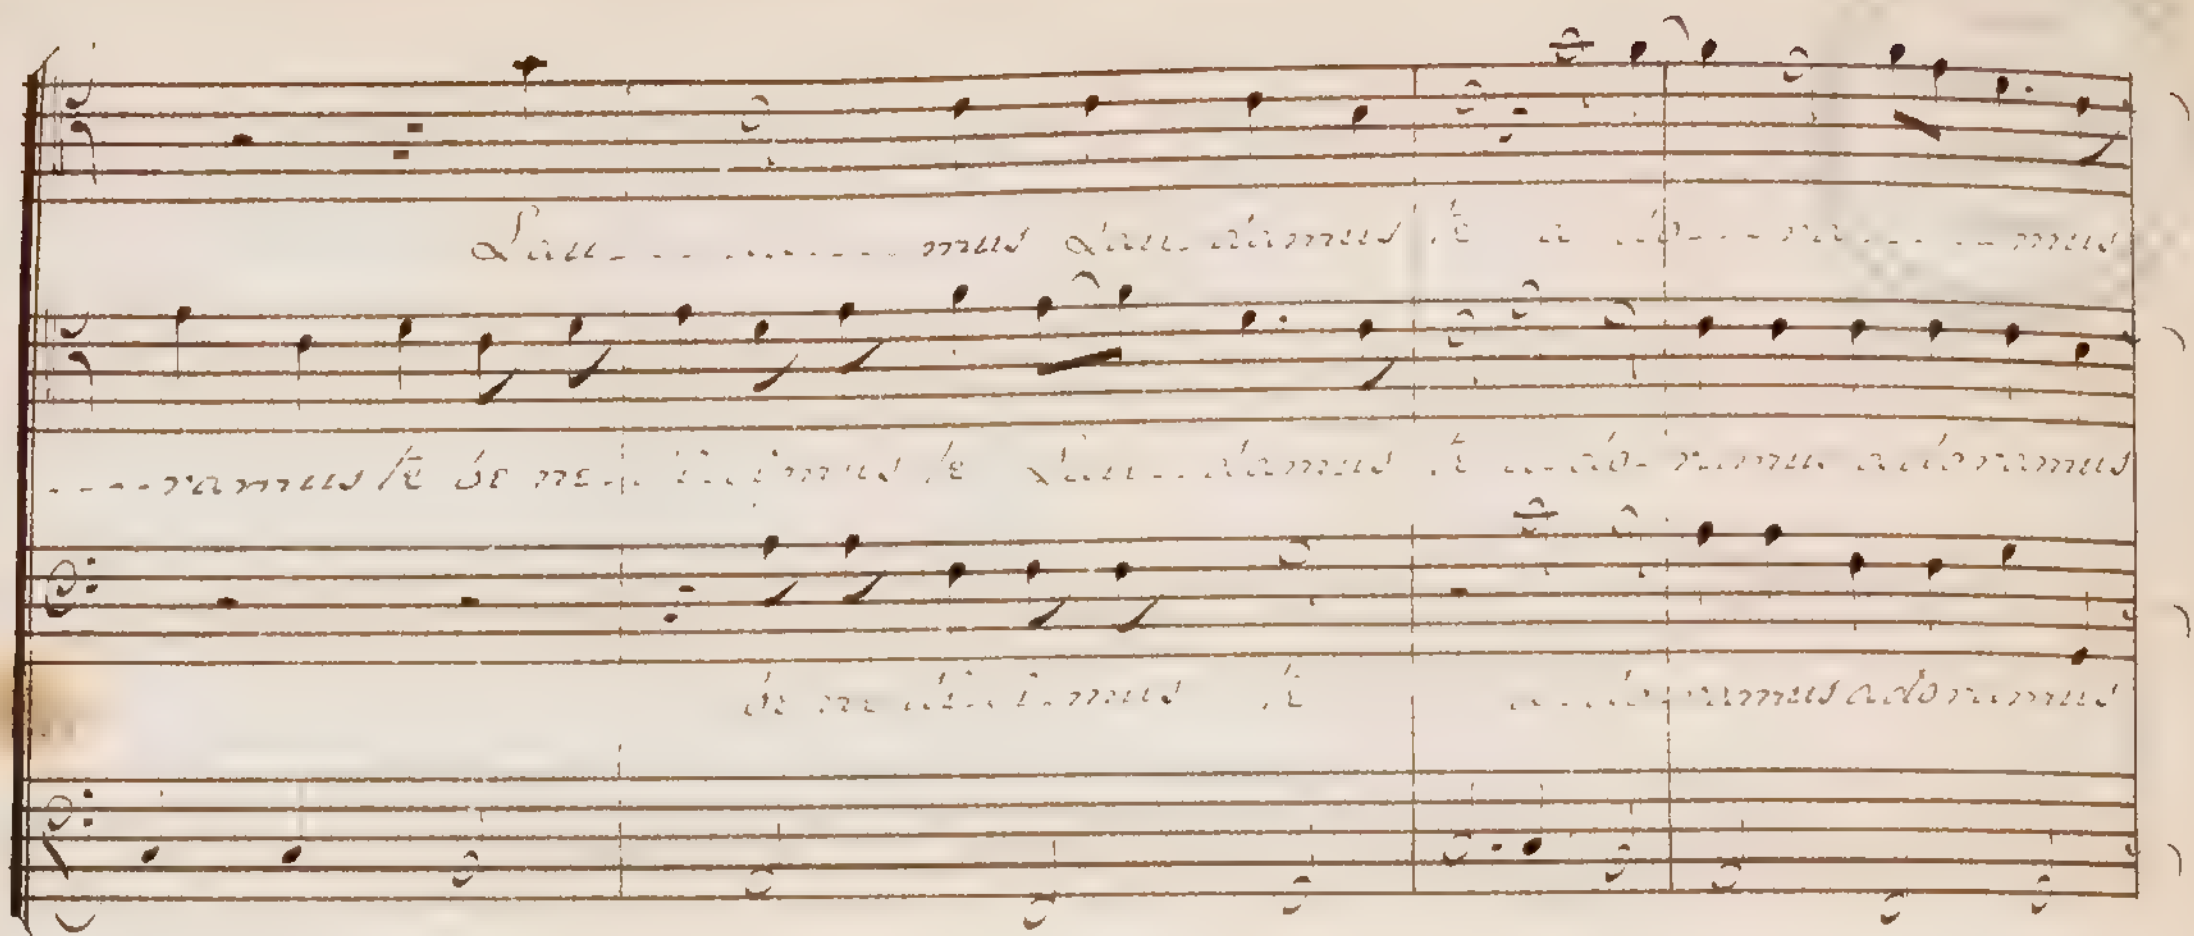 Lau - - - - - - - - - - - mus Lau - damus te a do - - - ra - - - - - - mus
- - - - ramus te be ne - di - cimus te Lau - - damus te a - do - ramus adoramus
be ne di - cimus te a - do - ramus adoramus